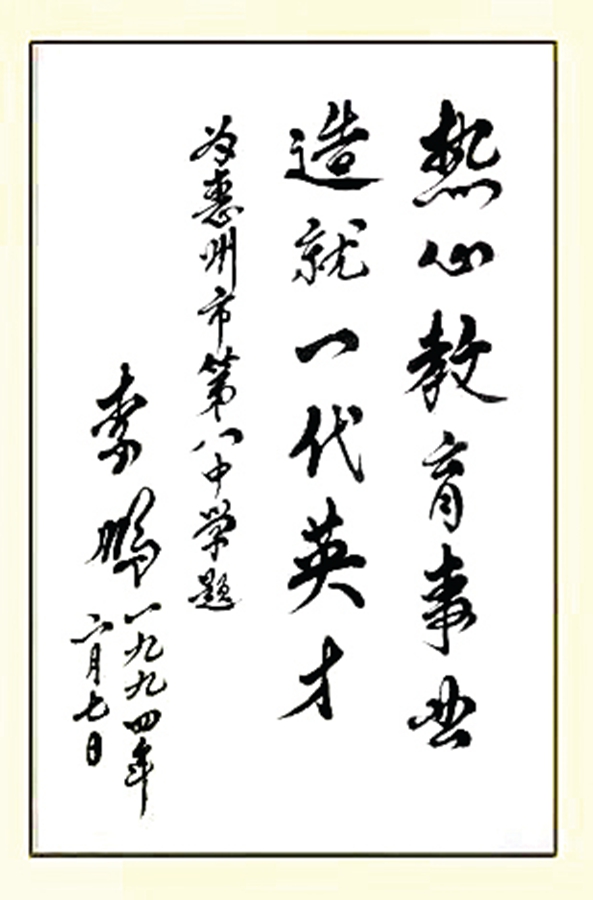 热心教育事业
造就一代英才
为惠州市第八中学题
李鹏
一九九四年
六月七日